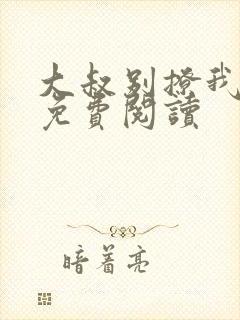 大叔别撩我
免費閱讀
暗着亮